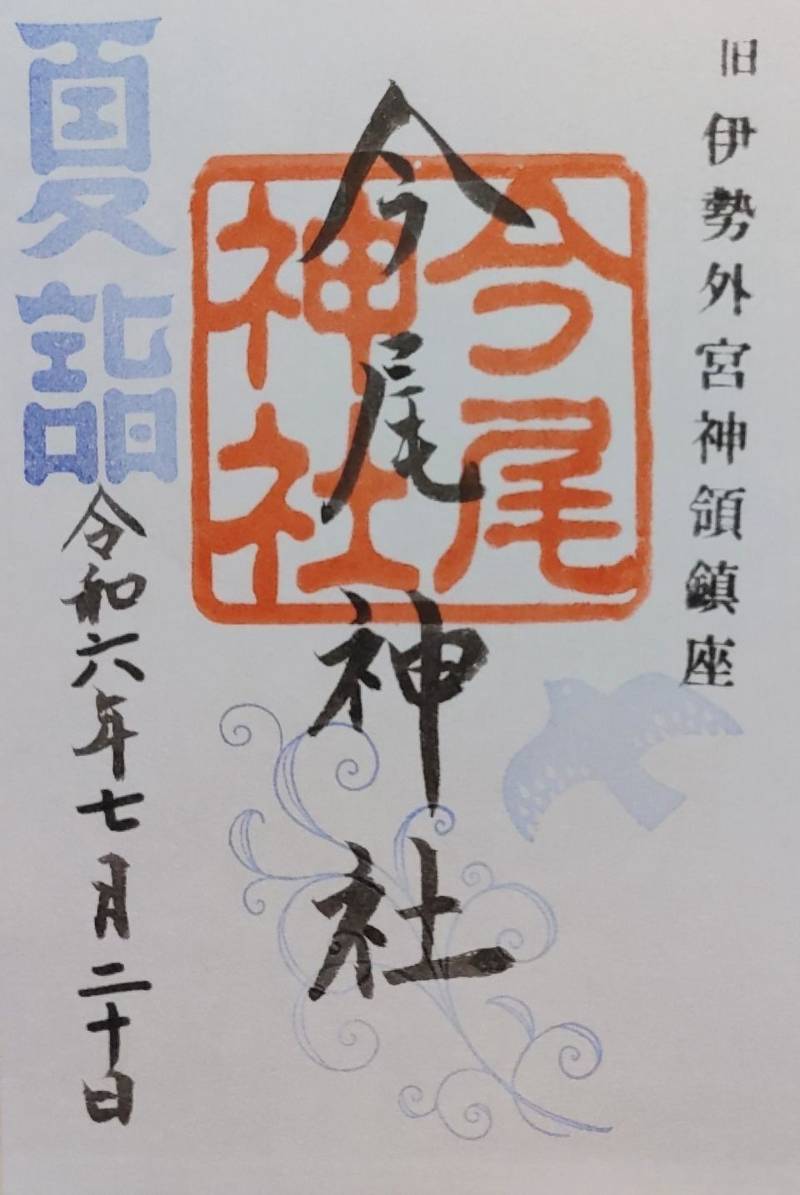 旧 伊勢外宮神領鎮座
今尾神社
今尾
神社
夏詣
令和六年七月二十日